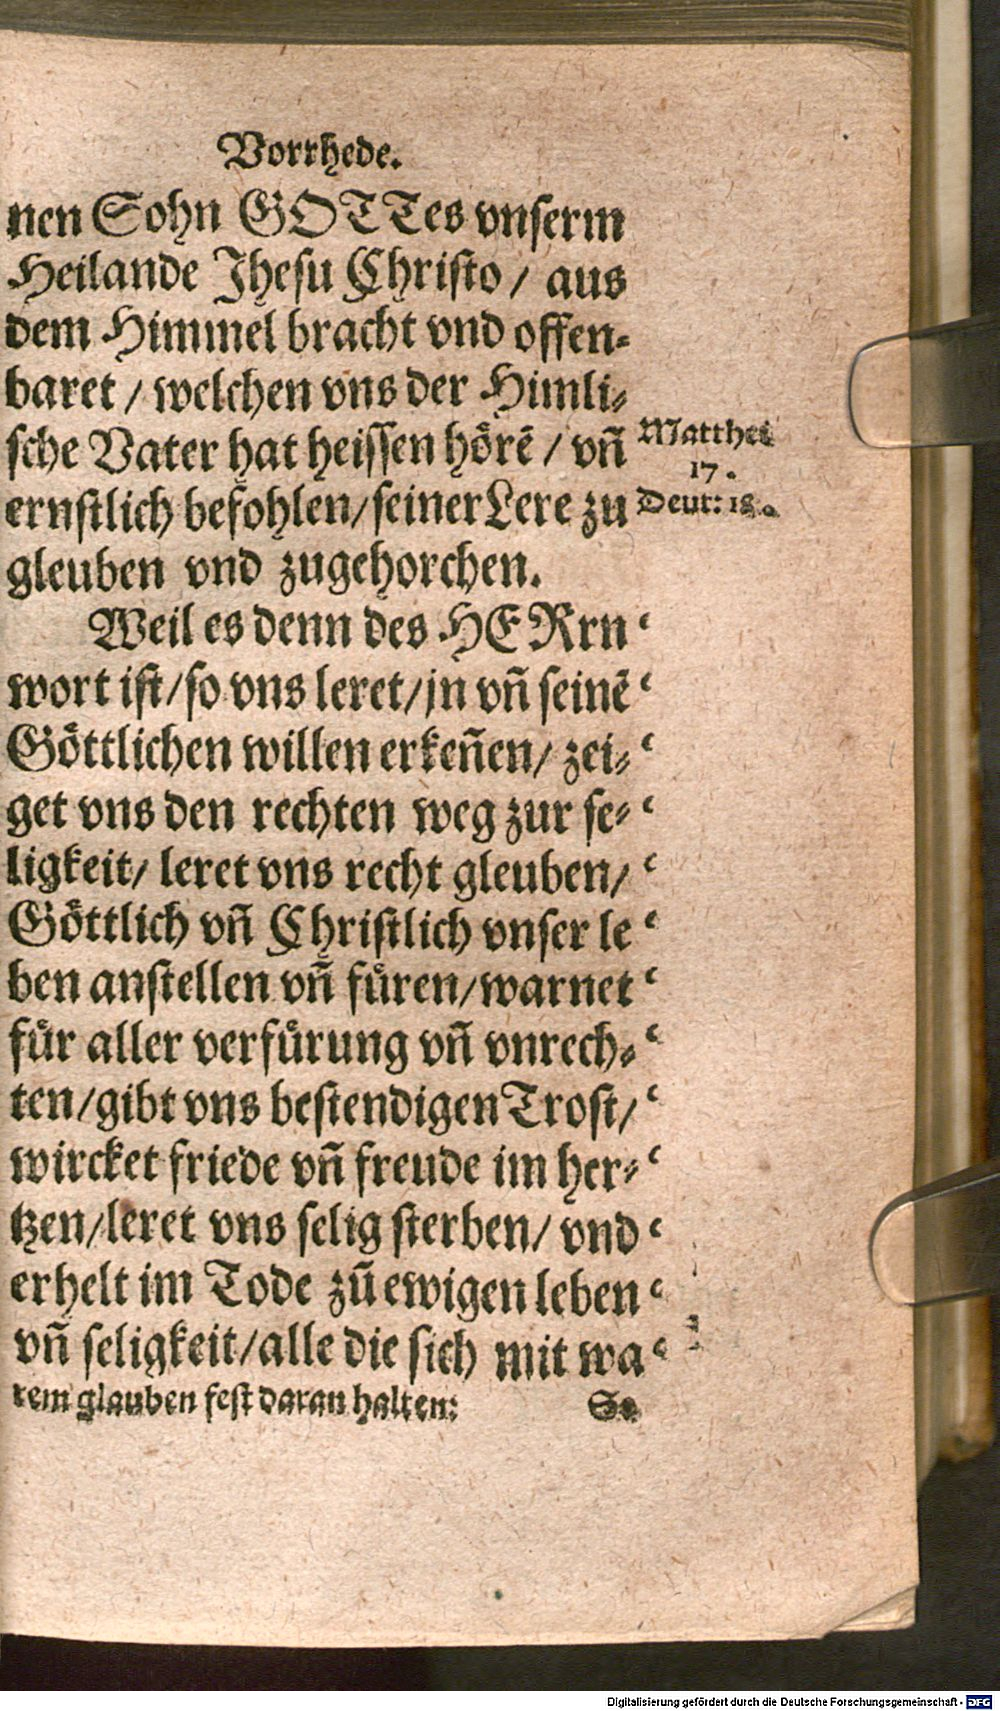 Vorrhede.
nen Sohn GOTTes vnserm
Heilande Jhesu Christo / aus
dem Himmel bracht vnd offen-
baret / welchen vns der Himli-
sche Vater hat heissen hörẽ / vñ
Matthei
17.
ernstlich befohlen/seiner Lere zu
Deut: 18.
gleuben vnd zugehorchen.
Weil es denn des HERrn ‘
wort ist/so vns leret/jn vñ seinẽ ‘
Göttlichen willen erkeñen/ zei- ‘
get vns den rechten weg zur se- ‘
ligkeit/ leret vns recht gleuben/ ‘
Göttlich vñ Christlich vnser le ‘
ben anstellen vñ füren/warnet ‘
für aller verfürung vñ vnrech- ‘
ten/gibt vns bestendigen Trost/ ‘
wircket friede vñ freude im her- ‘
tzen/leret vns selig sterben/ vnd ‘
erhelt im Tode zũ ewigen leben ‘
vñ seligkeit/alle die sich mit wa ‘
rem glauben fest daran halten:
Se
Digitalisierung gefördert durch die Deutsche Forschungsgemeinschaft - DFG